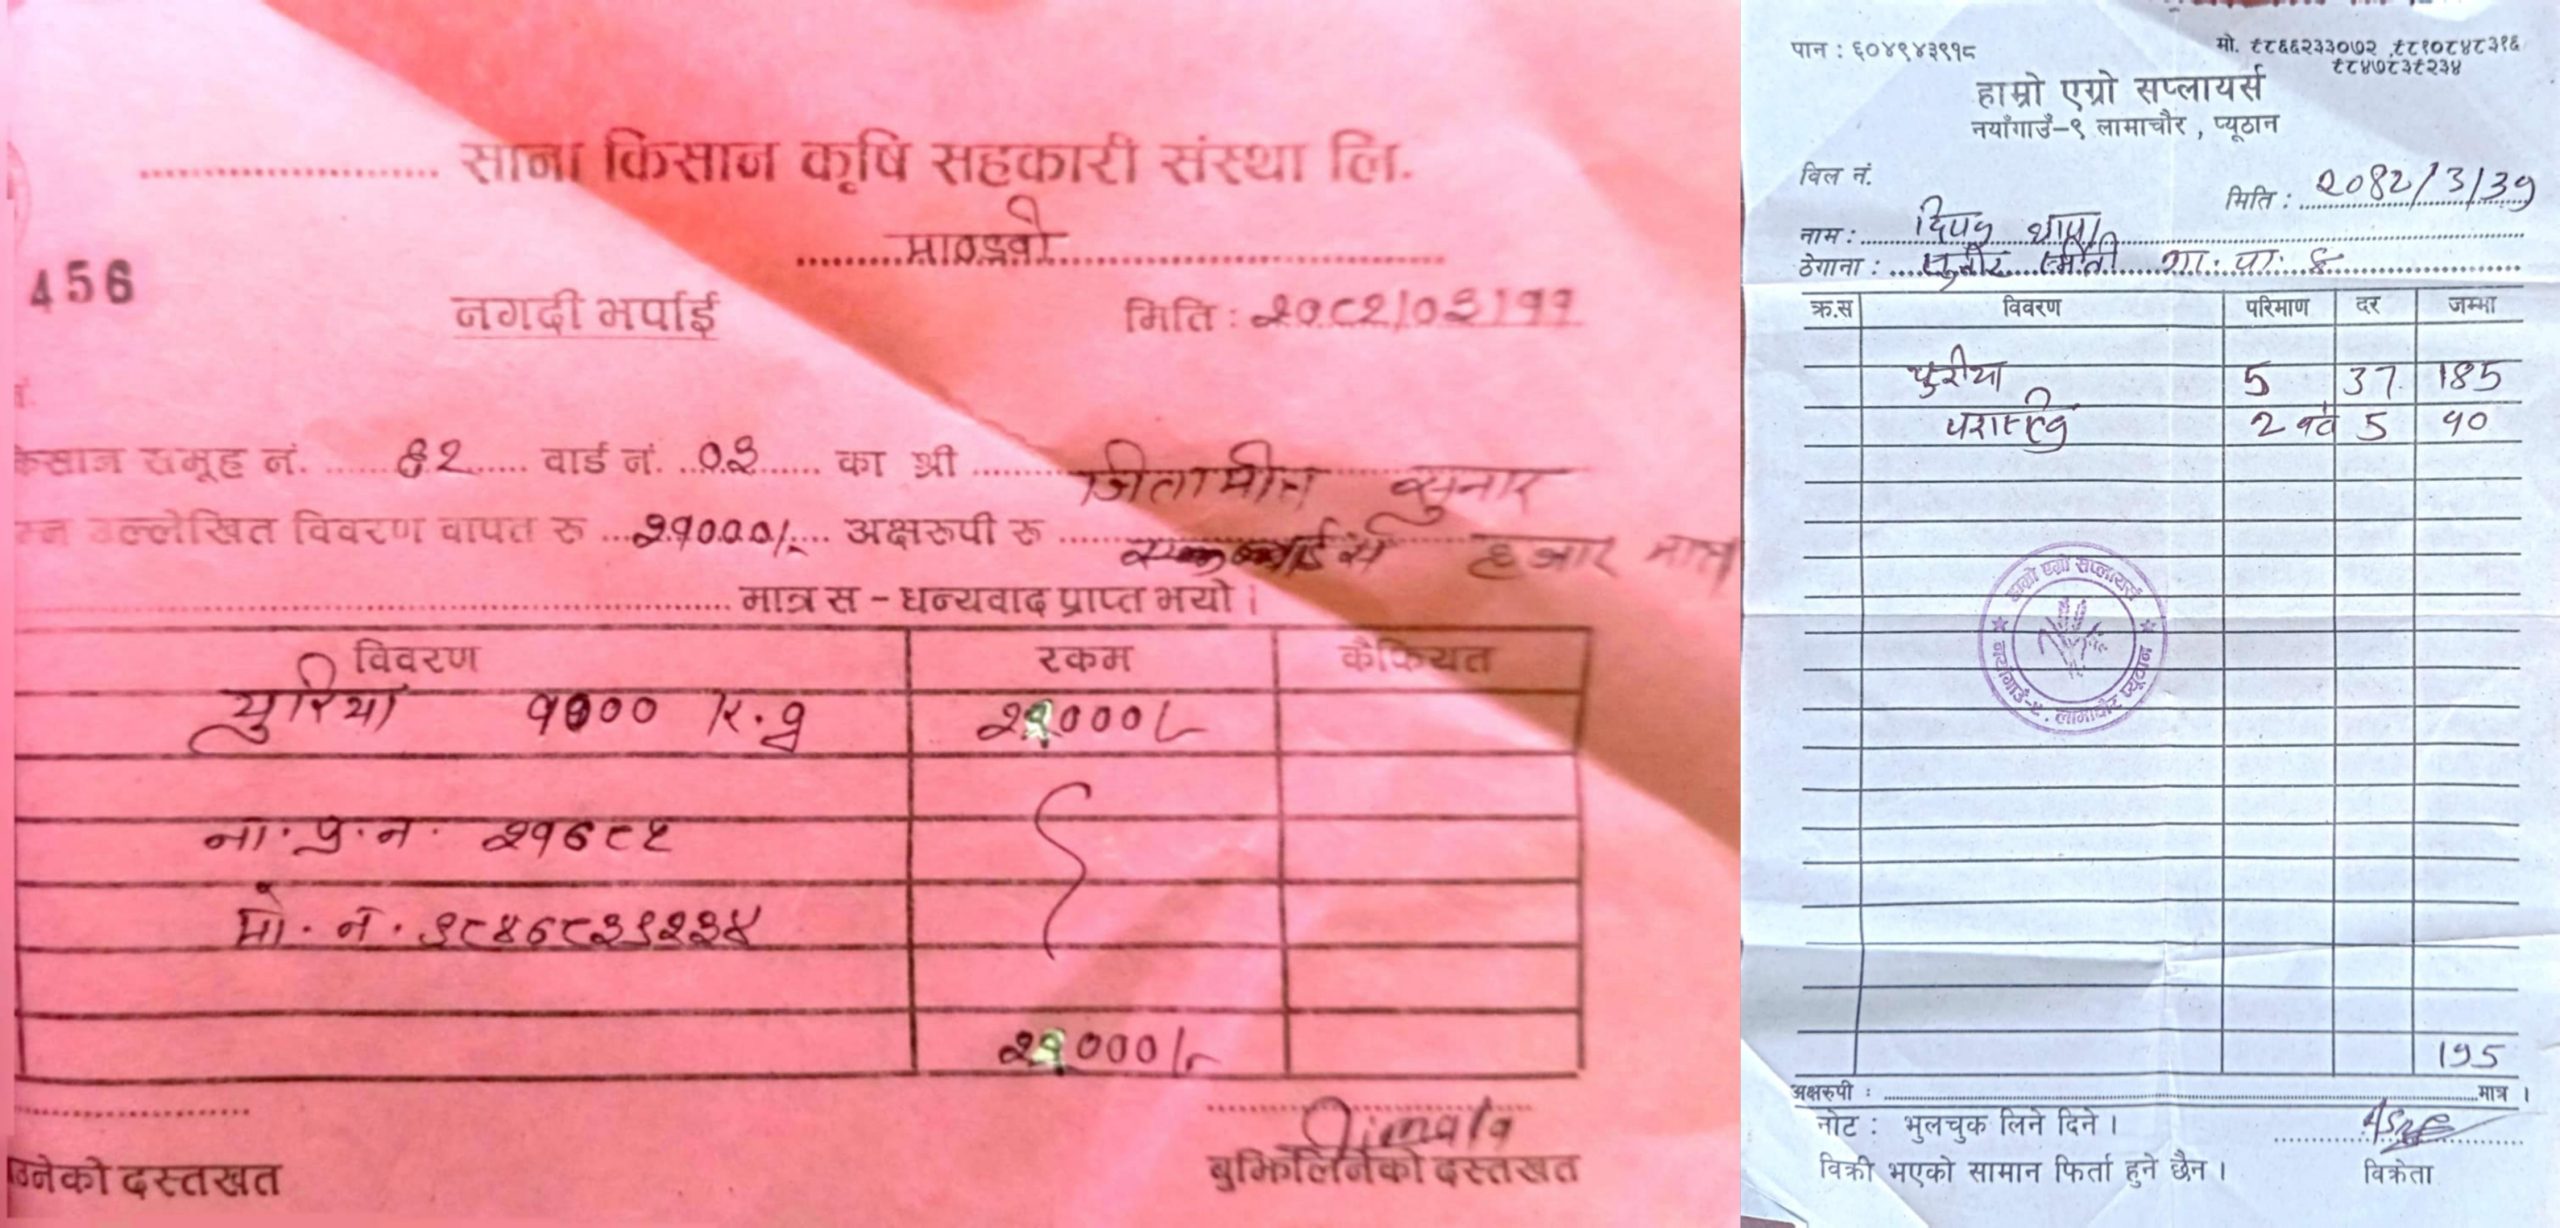 साना किसान कृषि सहकारी संस्था लि.
माण्डवी
456
नगदी भर्पाई
मिति : २०८२/०३/११
किसान समूह नं. ६२ वार्ड नं. ०३ का श्री जितामीत सुनार
उल्लेखित विवरण वापत रु २१०००/- अक्षरुपी रु हजार मात्र
मात्र स - धन्यवाद प्राप्त भयो ।
विवरण रकम कैफियत
युरिया १००० के.जी २१०००/-
ना. प्र. न. २१७८९
मो. नं. ९८४७८३९२३४
२१०००/-
Bimala
दस्तखत बुझिलिनेको दस्तखत
पान : ६०४९४३९१८ मो. ९८६६२३३०७२ ,९८१०८४८३१६
९८४७८३९२३४
हाम्रो एग्रो सप्लायर्स
नयाँगाउँ-९ लामाचौर , प्यूठान
विल नं. मिति : 2082/3/31
नाम : दिपक थापा
ठेगाना : गा. पा. ६
क्र.स विवरण परिमाण दर जम्मा
युरीया 5 37 185
2 5 10
हाम्रो एग्रो सप्लायर्स
नयाँगाउँ-९, लामाचौर प्यूठान
195
अक्षरुपी : मात्र ।
नोट : भुलचुक लिने दिने ।
विक्री भएको सामान फिर्ता हुने छैन । विक्रेता